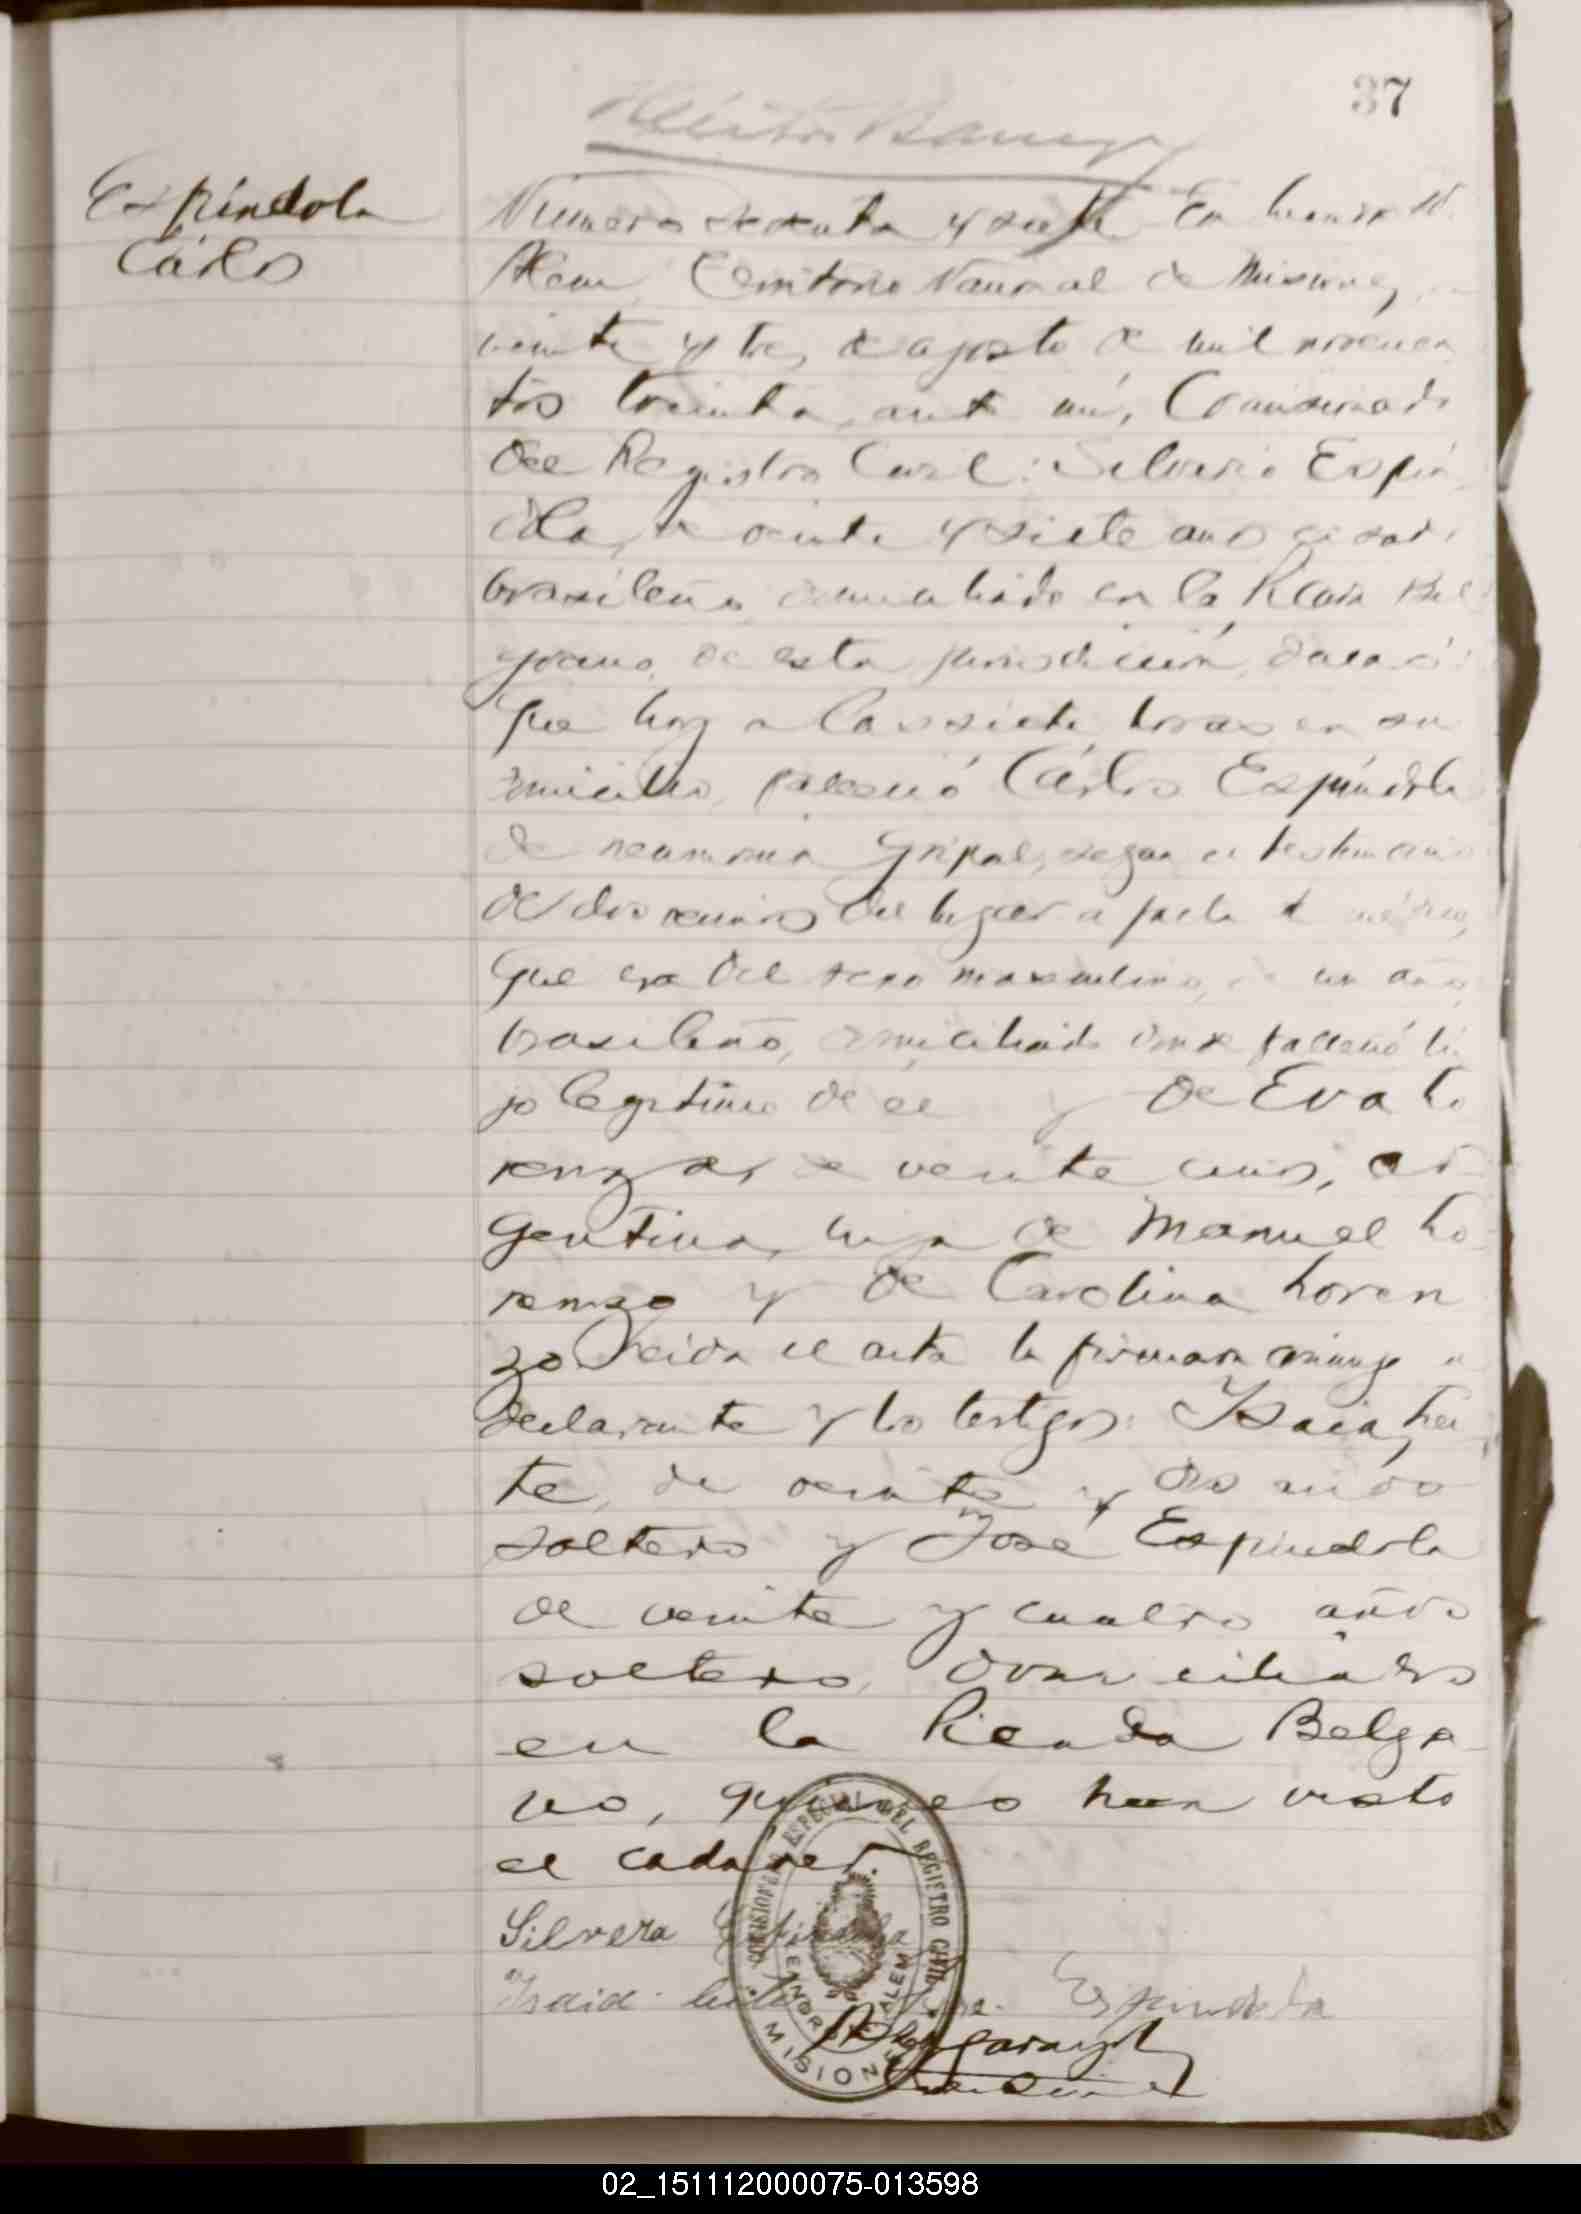 37
Espíndola
Cárlos
Número sesenta y siete En Leandro N.
Alem, Territorio Nacional de Misiones,
veinte y tres de agosto de mil novecien
tos treinta, ante mí, Comisionado
del Registro Civil: Silverio Espín
dola, de veinte y siete años de edad,
brasileño, domiciliado en la Picada Bel
grano, de esta jurisdicción, declaró:
Que hoy a las siete horas en su
domicilio, falleció Cárlos Espíndola
de neumonia gripal, segun el testimonio
de dos vecinos del lugar a falta de médico,
que era del sexo masculino, de un año,
brasileño, domiciliado donde falleció hi
jo legítimo de él y de Eva Lo
renzo, de veinte años, ar
gentina, hija de Manuel Lo
renzo y de Carolina Loren
zo. Leida el acta la firmaron conmigo el
declarante y los testigos: Isaia Lei
te, de veinte y dos años
soltero y José Espindola
de veinte y cuatro años
soltero, domiciliados
en la Picada Belgra
no, quienes han visto
el cadaver.
Silvera Espindola
Isaia Leite Jose Espindola
COMISION ESPECIAL DEL REGISTRO CIVIL
LEANDRO N. ALEM
MISIONES
02_151112000075-013598